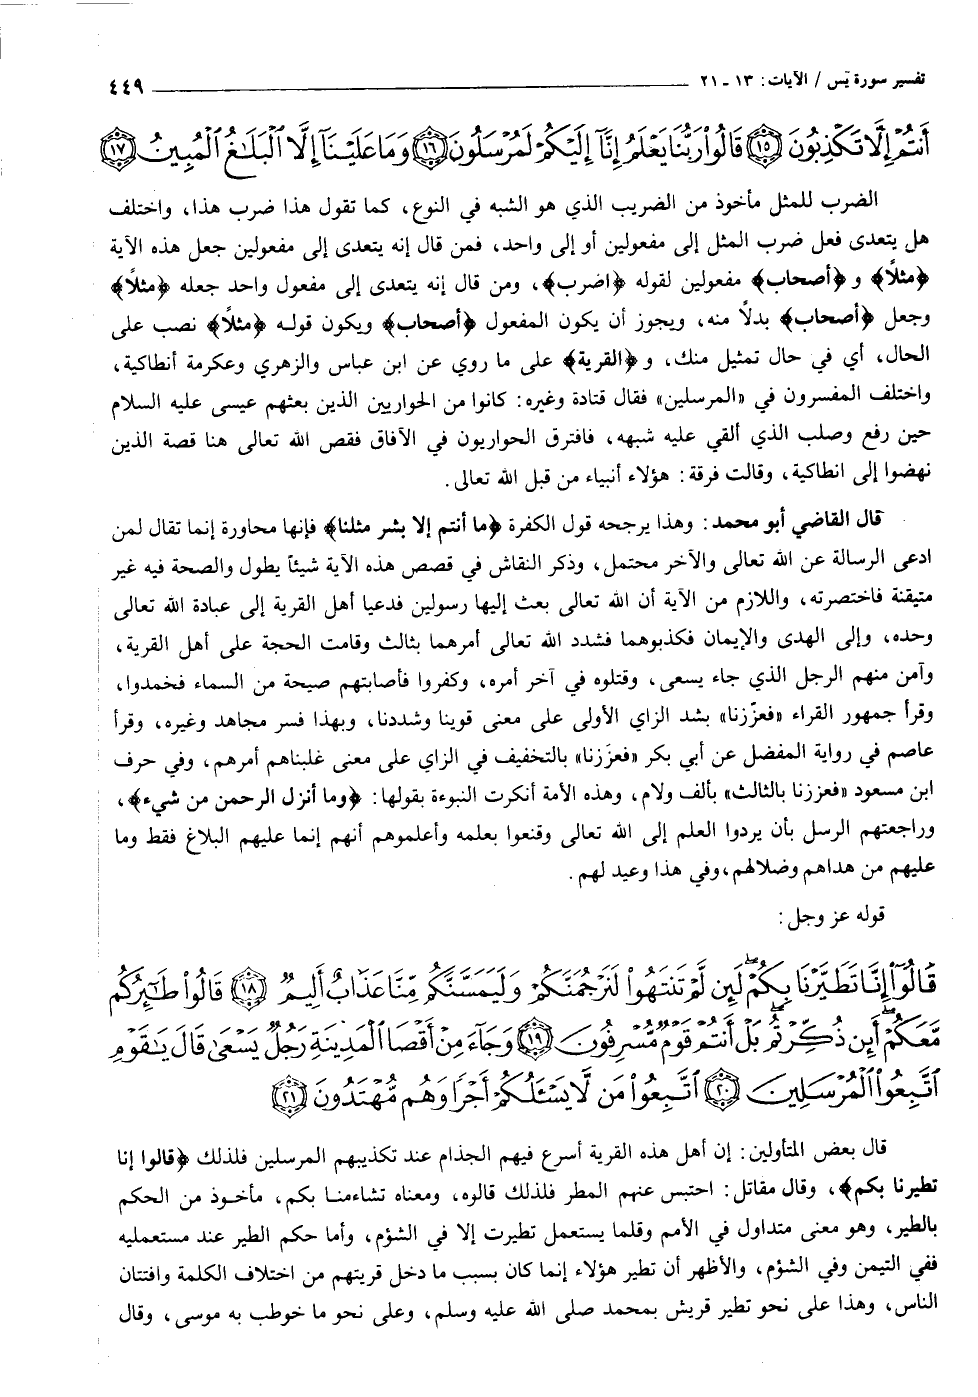 تفسير سورة يس / الآيات: ١٣ - ٢١ ٤٤٩
أَنتُمْ إِلَّا تَكْذِبُونَ ١٥ قَالُوا۟ رَبُّنَا يَعْلَمُ إِنَّآ إِلَيْكُمْ لَمُرْسَلُونَ ١٦ وَمَا عَلَيْنَآ إِلَّا ٱلْبَلَٰغُ ٱلْمُبِينُ ١٧
الضرب للمثل مأخوذ من الضريب الذي هو الشبه في النوع، كما تقول هذا ضرب هذا، واختلف
هل يتعدى فعل ضرب المثل إلى مفعولين أو إلى واحد، فمن قال إنه يتعدى إلى مفعولين جعل هذه الآية
﴿مثلاً﴾ و ﴿أصحاب﴾ مفعولين لقوله ﴿اضرب﴾، ومن قال إنه يتعدى إلى مفعول واحد جعله ﴿مثلاً﴾
وجعل ﴿أصحاب﴾ بدلاً منه، ويجوز أن يكون المفعول ﴿أصحاب﴾ ويكون قوله ﴿مثلاً﴾ نصب على
الحال، أي في حال تمثيل منك، و ﴿القرية﴾ على ما روي عن ابن عباس والزهري وعكرمة أنطاكية،
واختلف المفسرون في «المرسلين» فقال قتادة وغيره: كانوا من الحواريين الذين بعثهم عيسى عليه السلام
حين رفع وصلب الذي ألقي عليه شبهه، فافترق الحواريون في الآفاق فقص الله تعالى هنا قصة الذين
نهضوا إلى انطاكية، وقالت فرقة: هؤلاء أنبياء من قبل الله تعالى.
قال القاضي أبو محمد: وهذا يرجحه قول الكفرة ﴿ما أنتم إلا بشر مثلنا﴾ فإنها محاورة إنما تقال لمن
ادعى الرسالة عن الله تعالى والآخر محتمل، وذكر النقاش في قصص هذه الآية شيئاً يطول والصحة فيه غير
متيقنة فاختصرته، واللازم من الآية أن الله تعالى بعث إليها رسولين فدعيا أهل القرية إلى عبادة الله تعالى
وحده، وإلى الهدى والإيمان فكذبوهما فشدد الله تعالى أمرهما بثالث وقامت الحجة على أهل القرية،
وآمن منهم الرجل الذي جاء يسعى، وقتلوه في آخر أمره، وكفروا فأصابتهم صيحة من السماء فخمدوا،
وقرأ جمهور القراء «فعزّزنا» بشد الزاي الأولى على معنى قوينا وشددنا، وبهذا فسر مجاهد وغيره، وقرأ
عاصم في رواية المفضل عن أبي بكر «فعزَزنا» بالتخفيف في الزاي على معنى غلبناهم أمرهم، وفي حرف
ابن مسعود «فعززنا بالثالث» بألف ولام، وهذه الأمة أنكرت النبوءة بقولها: ﴿وما أنزل الرحمن من شيء﴾،
وراجعتهم الرسل بأن يردوا العلم إلى الله تعالى وقنعوا بعلمه وأعلموهم أنهم إنما عليهم البلاغ فقط وما
عليهم من هداهم وضلالهم، وفي هذا وعيد لهم.
قوله عز وجل:
قَالُوٓا۟ إِنَّا تَطَيَّرْنَا بِكُمْ لَئِن لَّمْ تَنتَهُوا۟ لَنَرْجُمَنَّكُمْ وَلَيَمَسَّنَّكُم مِّنَّا عَذَابٌ أَلِيمٌ ١٨ قَالُوا۟ طَٰٓئِرُكُم
مَّعَكُمْ أَئِن ذُكِّرْتُم بَلْ أَنتُمْ قَوْمٌ مُّسْرِفُونَ ١٩ وَجَآءَ مِنْ أَقْصَا ٱلْمَدِينَةِ رَجُلٌ يَسْعَىٰ قَالَ يَٰقَوْمِ
ٱتَّبِعُوا۟ ٱلْمُرْسَلِينَ ٢٠ ٱتَّبِعُوا۟ مَن لَّا يَسْـَٔلُكُمْ أَجْرًا وَهُم مُّهْتَدُونَ ٢١
قال بعض المتأولين: إن أهل هذه القرية أسرع فيهم الجذام عند تكذيبهم المرسلين فلذلك ﴿قالوا إنا
تطيرنا بكم﴾، وقال مقاتل: احتبس عنهم المطر فلذلك قالوه، ومعناه تشاءمنا بكم، مأخوذ من الحكم
بالطير، وهو معنى متداول في الأمم وقلما يستعمل تطيرت إلا في الشؤم، وأما حكم الطير عند مستعمليه
ففي التيمن وفي الشؤم، والأظهر أن تطير هؤلاء إنما كان بسبب ما دخل قريتهم من اختلاف الكلمة وافتتان
الناس، وهذا على نحو تطير قريش بمحمد صلى الله عليه وسلم، وعلى نحو ما خوطب به موسى، وقال